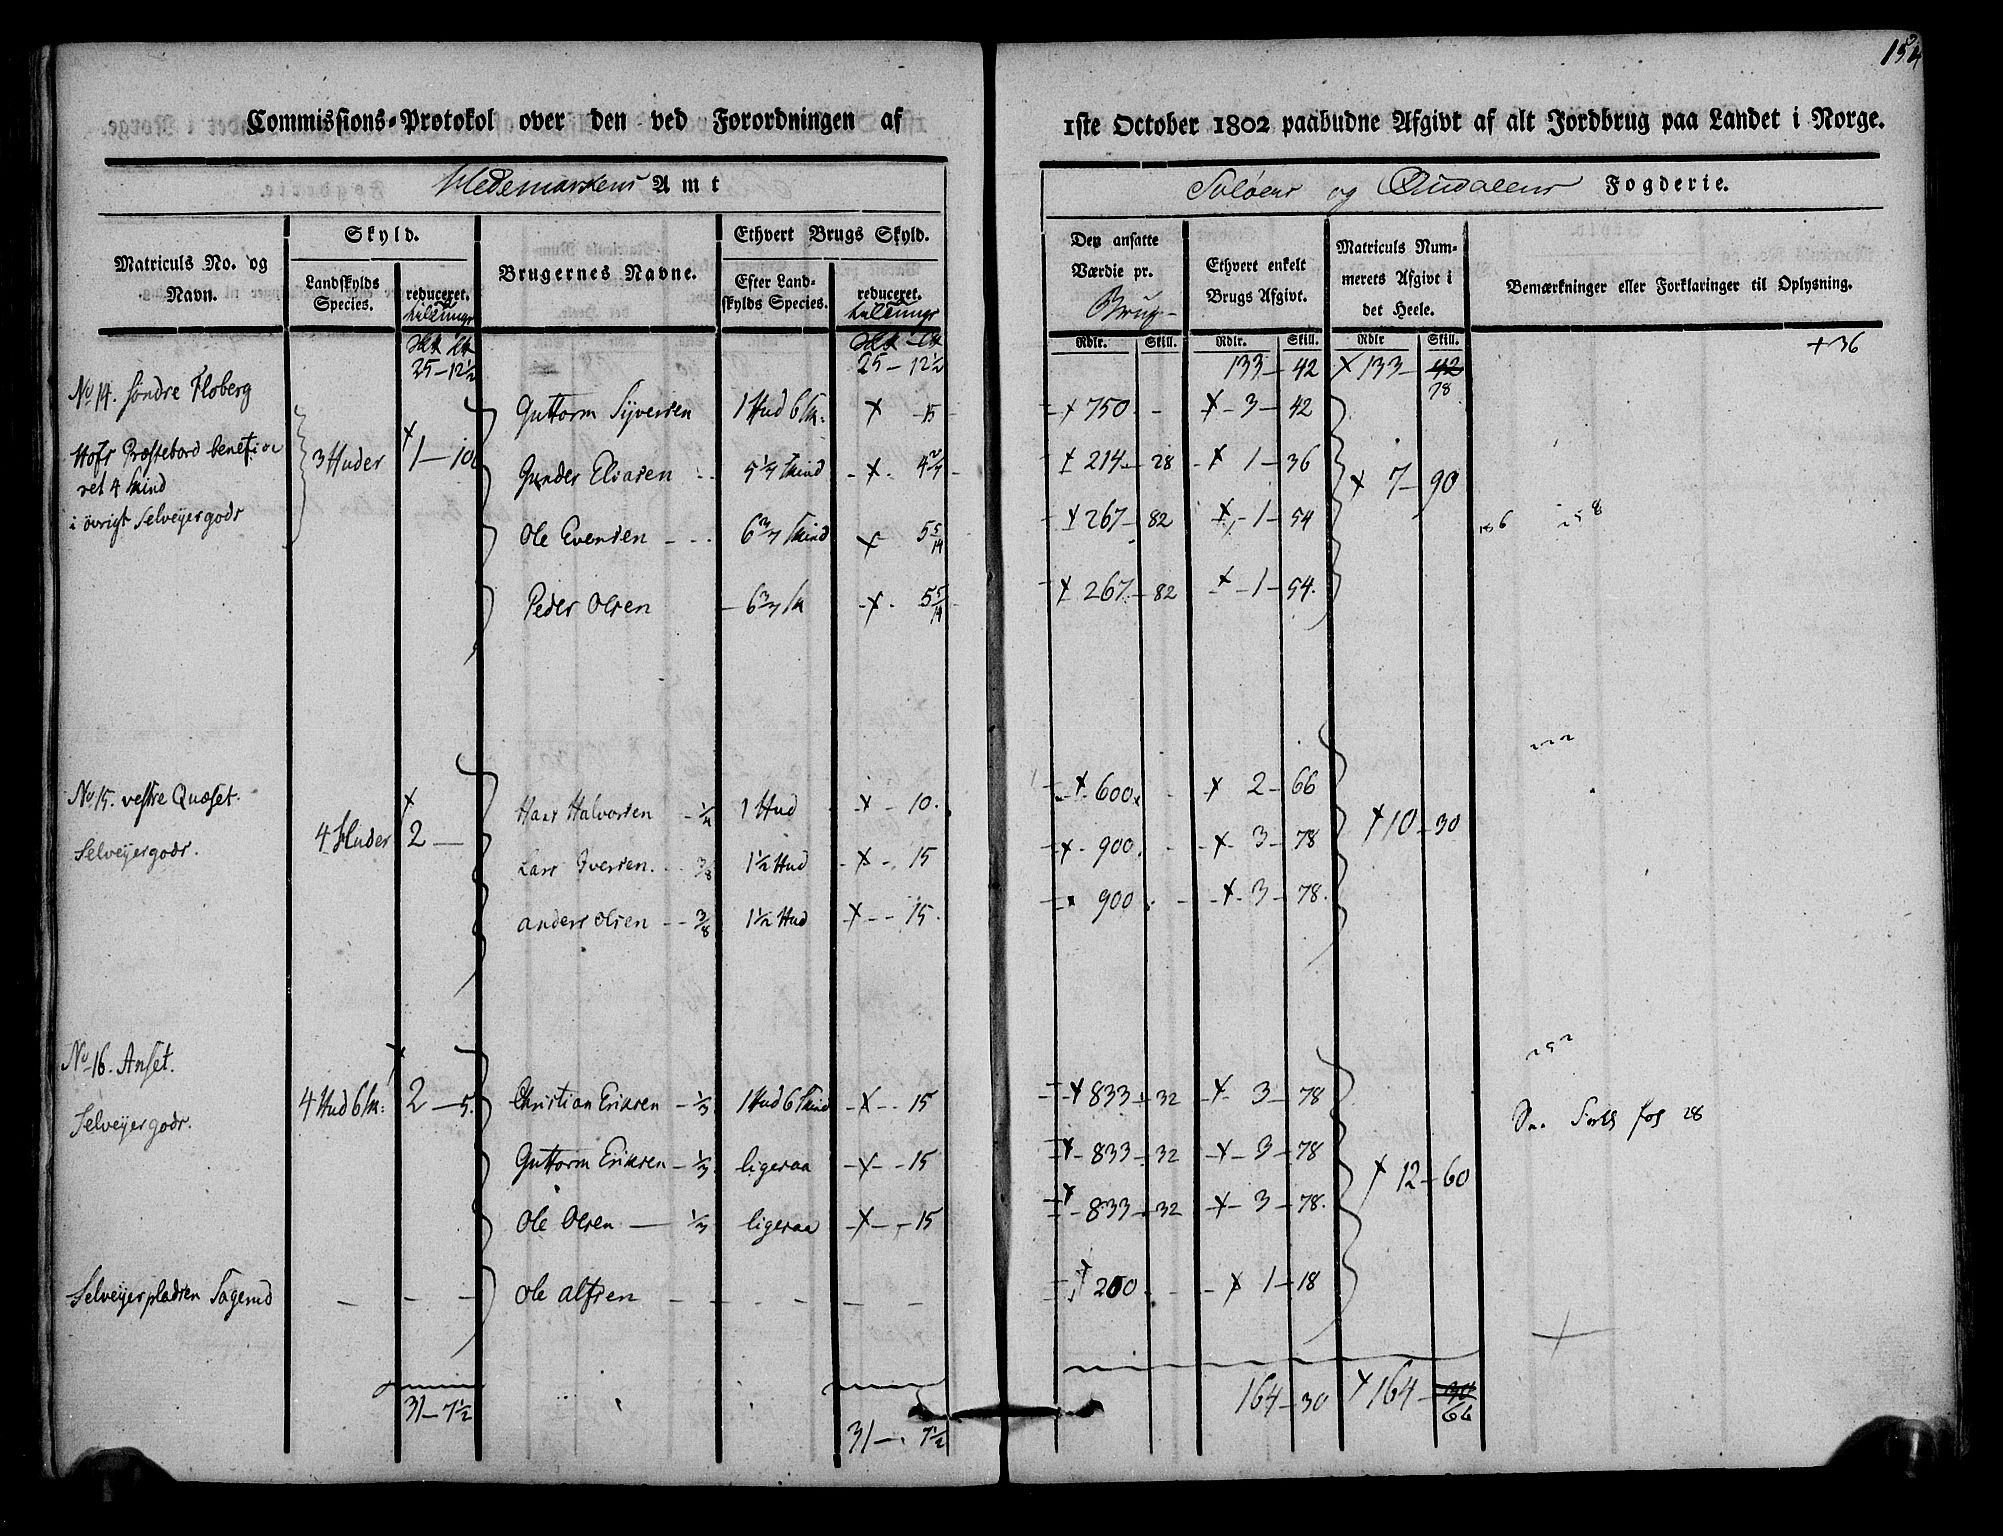 152
Commissions-Protokol over den ved Forordningen af 1ste October 1802 paabudne Afgivt af alt Jordbrug paa Landet i Norge.
Hedemarkens Amt
Soløers og Oudalens Fogderie.
Matriculs No. og Navn.
Skyld.
Landskylds Species.
reduceret.
Brugernes Navne.
Ethvert Brugs Skyld.
Efter Landskylds Species.
reduceret.
Den ansatte Værdie pr. Brug
Ethvert enkelt Brugs Afgivt.
Matriculs Nummerets Afgivt i det Heele.
Bemærkninger eller Forklaringer til Oplysning.
Rdlr. Skill. Rdlr. Skill. Rdlr Skill.
25 – 12½ 25 – 12½ 133 – 42 × 133 – 42 78 + 36
No 14. søndre Floberg Guttorm Syversen 1 Hud 6 Sk: × – 15 × 750 – × – 3 – 42
Hofs Præstebord benefice
ret 4 Skind
i övrigt Selveyergods
3 Huder × 1 – 10 Gunder Elvasen 5 1/7 Skind × 4 2/7 × 214 – 28 × 1 – 36 × 7 – 90
Ole Evensen 6 3/7 Skind × 5 5/14 × 267 – 82 × – 1 – 54
Peder Olsen 6 3/7 Sk × 5 5/14 × 267 – 82 × – 1 – 54
No 15. vestre Quæset.
Selveyergods.
4 Huder × 2 – Hans Halvorsen ¼ 1 Hud × – 10. × 600 × 2 – 66 × 10 – 30
Lars Iversen. 3/8 1½ Hud × – 15 × 900 × – 3 – 78
Anders Olsen 3/8 1½ Hud × – 15. × 900 × – 3 – 78.
No 16. Anset.
Selveyergods.
4 Hud 6 Sk: × 2 – 5. Christian Eriksen – 1/3 1 Hud 6 Skind × – 15 × 833 – 32 × 3 – 78
Guttorm Eriksen – 1/3 ligesaa × – 15 × 833 – 32 × – 3 – 78 × 12 – 60
Ole Olsen – 1/3 ligesaa × – 15 × 833 – 32 × – 3 – 78.
Selveyerpladsen Sagerud – – – Ole Alfsen – – – – – – × 200 × 1 – 18
31 – 7½ 31 – 7½ 164 – 30 × 164 – 30 66